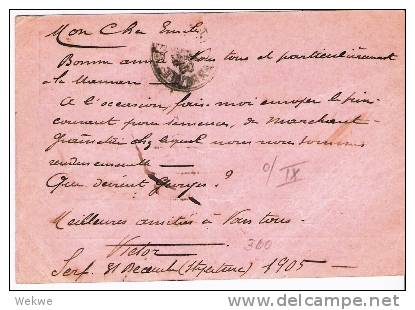 Mon Cher Emile
Bonne année à Vous tous et particulièrement
à la Maman
A l'occasion, fais-moi envoyer le prix
courant pour semences, du marchand
grainetier chez lequel nous nous sommes
rendus ensemble
Que devient Georges?
Meilleures amitiés à Vous tous.
Victor
31 Décembre 1905
0/IX
300
Wekwe
http://www.delcampe.net